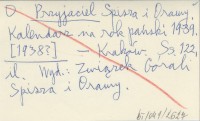 O Przyjaciel Spisza i Orawy.
Kalendarz na rok pański 1939.
[1938?] — Kraków. S. 122,
il. Wyd.: Związek Górali
Spisza i Orawy.